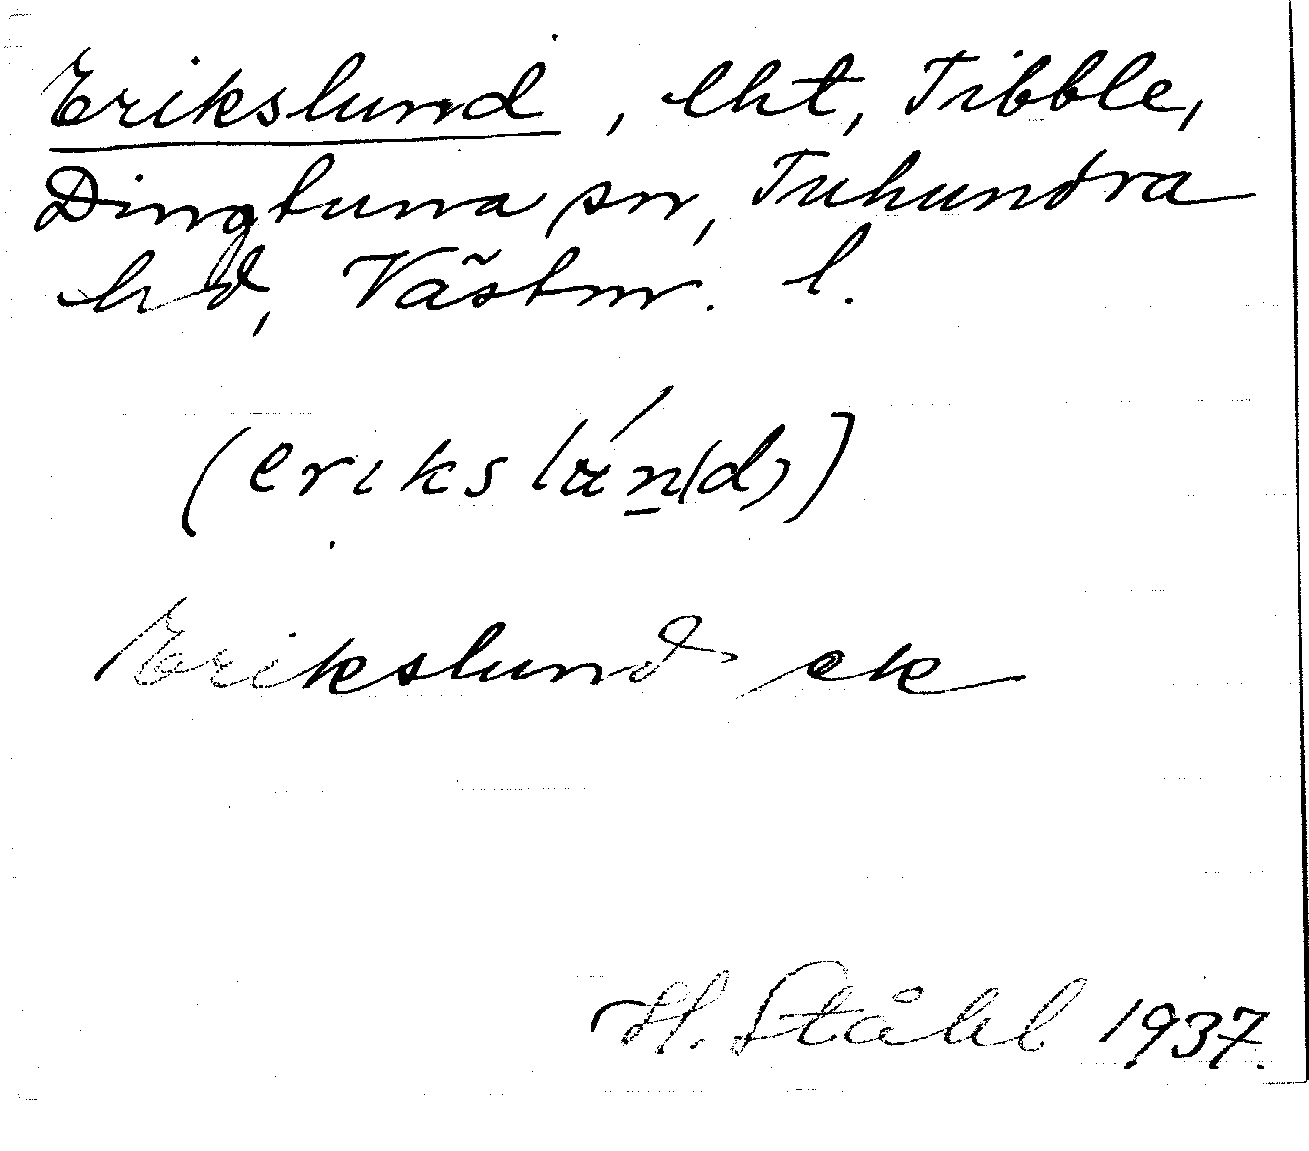 Erikslund, lht, Tibble,
Dingtuna sn, Tuhundra
hd, Västm. l.
(erikslán(d))
Erikslund ek
H. Ståhl 1937.